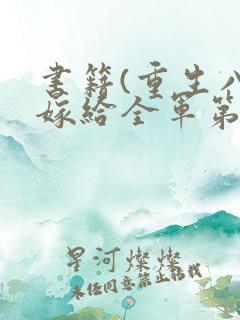 書籍(重生八
嫁給全軍第
星河燦燦
未经同意禁止转载